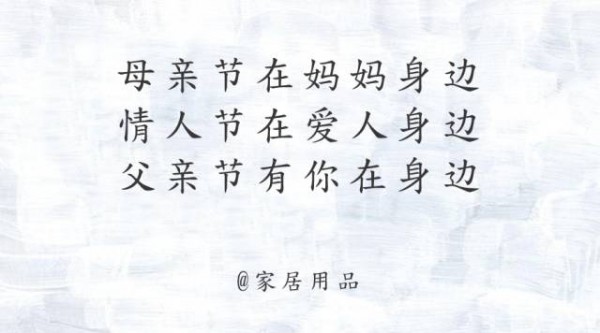 母亲节在妈妈身边
情人节在爱人身边
父亲节有你在身边
@家居用品